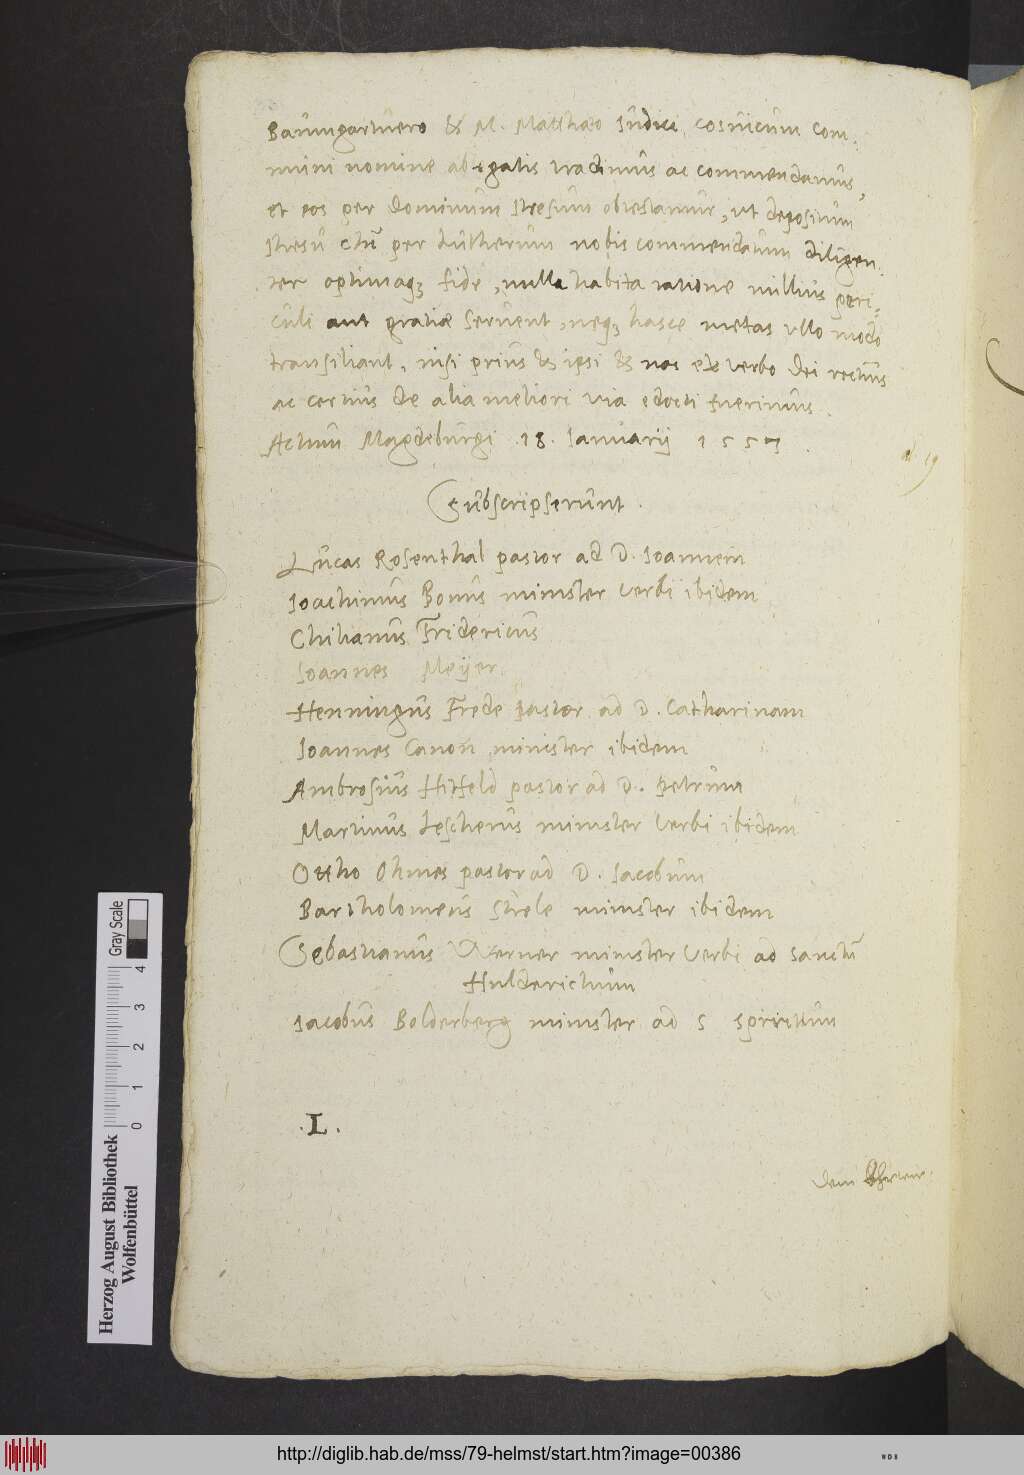 Baumgartnero & M. Matthæo Iudici, eos uicum com¬
muni nomine ablegatis tradimus ac commendamus,
et eos per Dominum Ihesum obtestamur, ut depositum
Ihesu Chri per Lutherum nobis commendatum diligen
ter optimaq; fide, nulla habita ratione nullius peri¬
culi aut gratiæ seruent, neq; hasce metas ullo modo
transiliant, nisi prius & ipsi & nos ex verbo Dei rectius
ac certius de alia meliori via edocti fuerimus.
Actum Magdeburgi 18. Ianuarij 1557.
Subscripserunt.
Lucas Rosenthal pastor ad D. Ioannem
Ioachimus Bonus minister verbi ibidem
Chilianus Fridericus
Ioannes Meÿer
Henningus Frede pastor ad D. Catharinam
Ioannes Canon minister ibidem
Ambrosius Hitfeld pastor ad D. Petrum
Martinus Lescherus minister verbi ibidem
Ottho Ohmes pastor ad D. Iacobum
Bartholomeus Strele minister ibidem
Sebastianus Werner minister verbi ad sanctū
Huldarichum
Iacobus Bolderberg minister ad S spiritum
.L.
Dem
Herzog August Bibliothek
Wolfenbüttel
0 1 2 3 4
Gray Scale
http://diglib.hab.de/mss/79-helmst/start.htm?image=00386